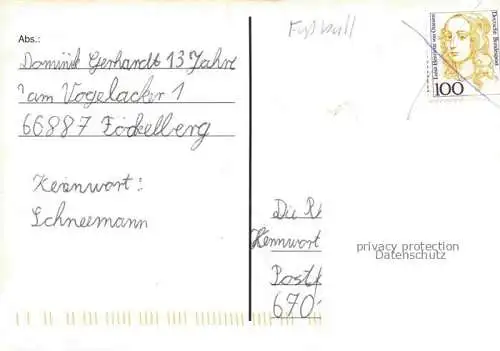 Abs.:
Dominik Gerhardt 13 Jahre
am Vogelacker 1
66887 Föckelberg
Kennwort:
Schneemann
Fußball
Deutsche Bundespost
Luise Henriette von Oranien
100
Die R
Kennwort
Post
670
privacy protection
Datenschutz